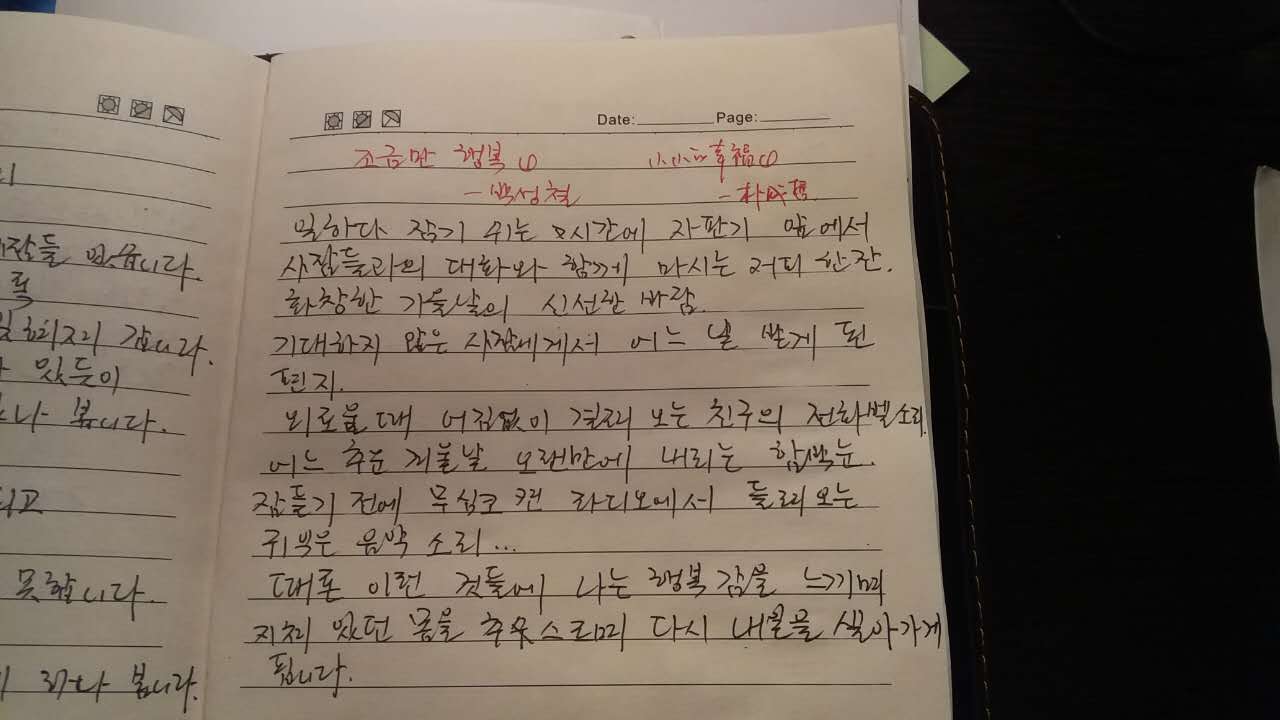 못합니다.
봅니다.
Date: Page:
조금만 행복 (1) 小小的幸福(1)
-박성철 -朴成哲
일하다 잠기 쉬는 시간에 자판기 앞에서
사람들과의 대화와 함께 마시는 커피 한잔.
화창한 가을날의 신선한 바람.
기대하지 않은 사람에게서 어느 날 받게 된
편지.
외로울 때 어김없이 걸려 오는 친구의 전화벨소리.
어느 추운 겨울날 오랜만에 내리는 함박눈.
잠들기 전에 무심코 켠 라디오에서 들려오는
귀익은 음악 소리...
때론 이런 것들에 나는 행복감을 느끼며
지쳐 있던 몸을 추스리며 다시 내일을 살아가게
됩니다.